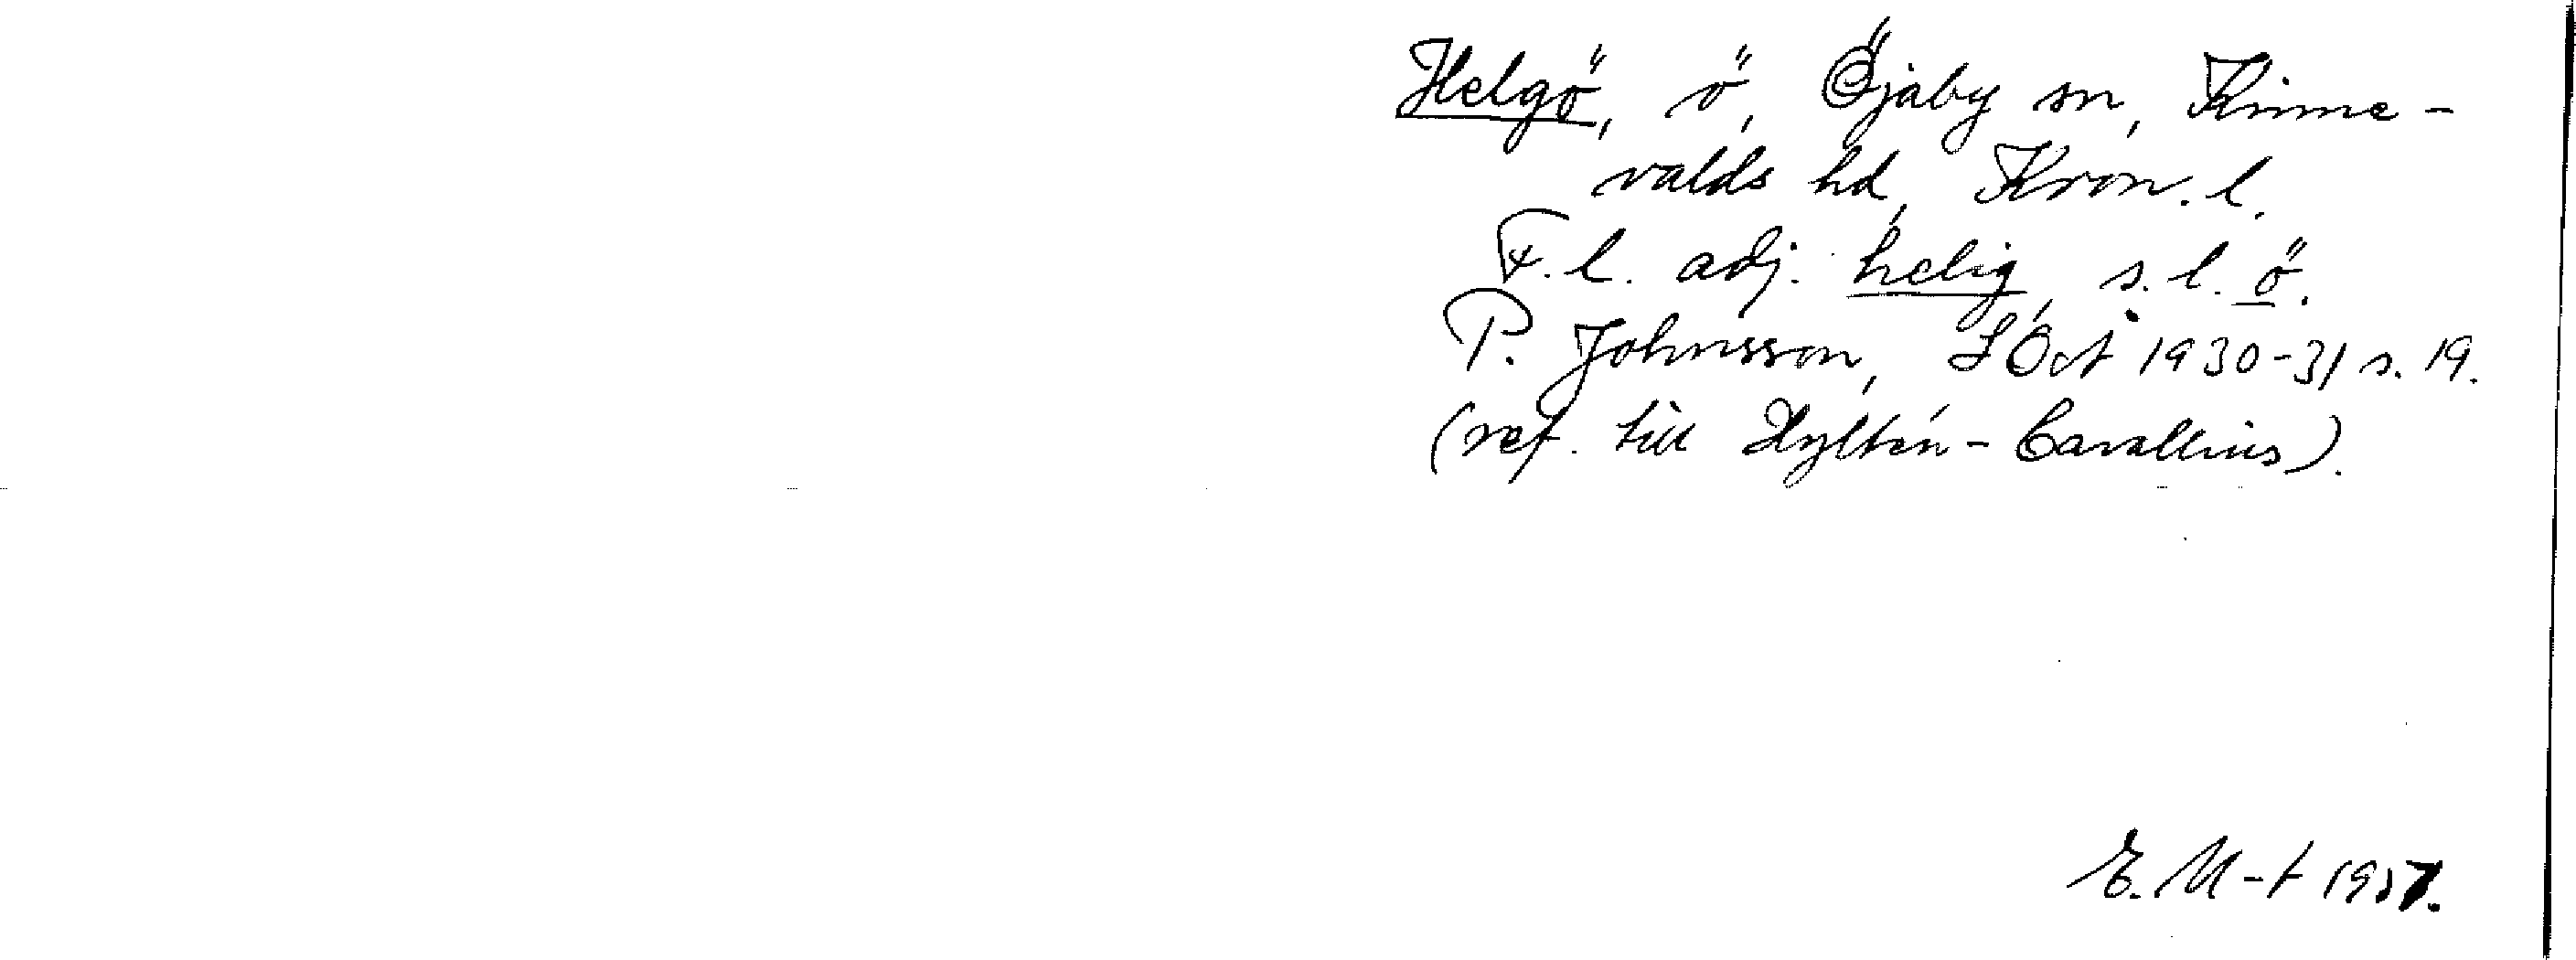 Helgö, ö, Öjaby sn, Kinne-
valds hd, Kron. l.
F. l. adj. helig, s. l. ö.
P. Johnsson, 1930-31 s. 19.
(ref. till Hyltén-Cavallius).
E. M-t